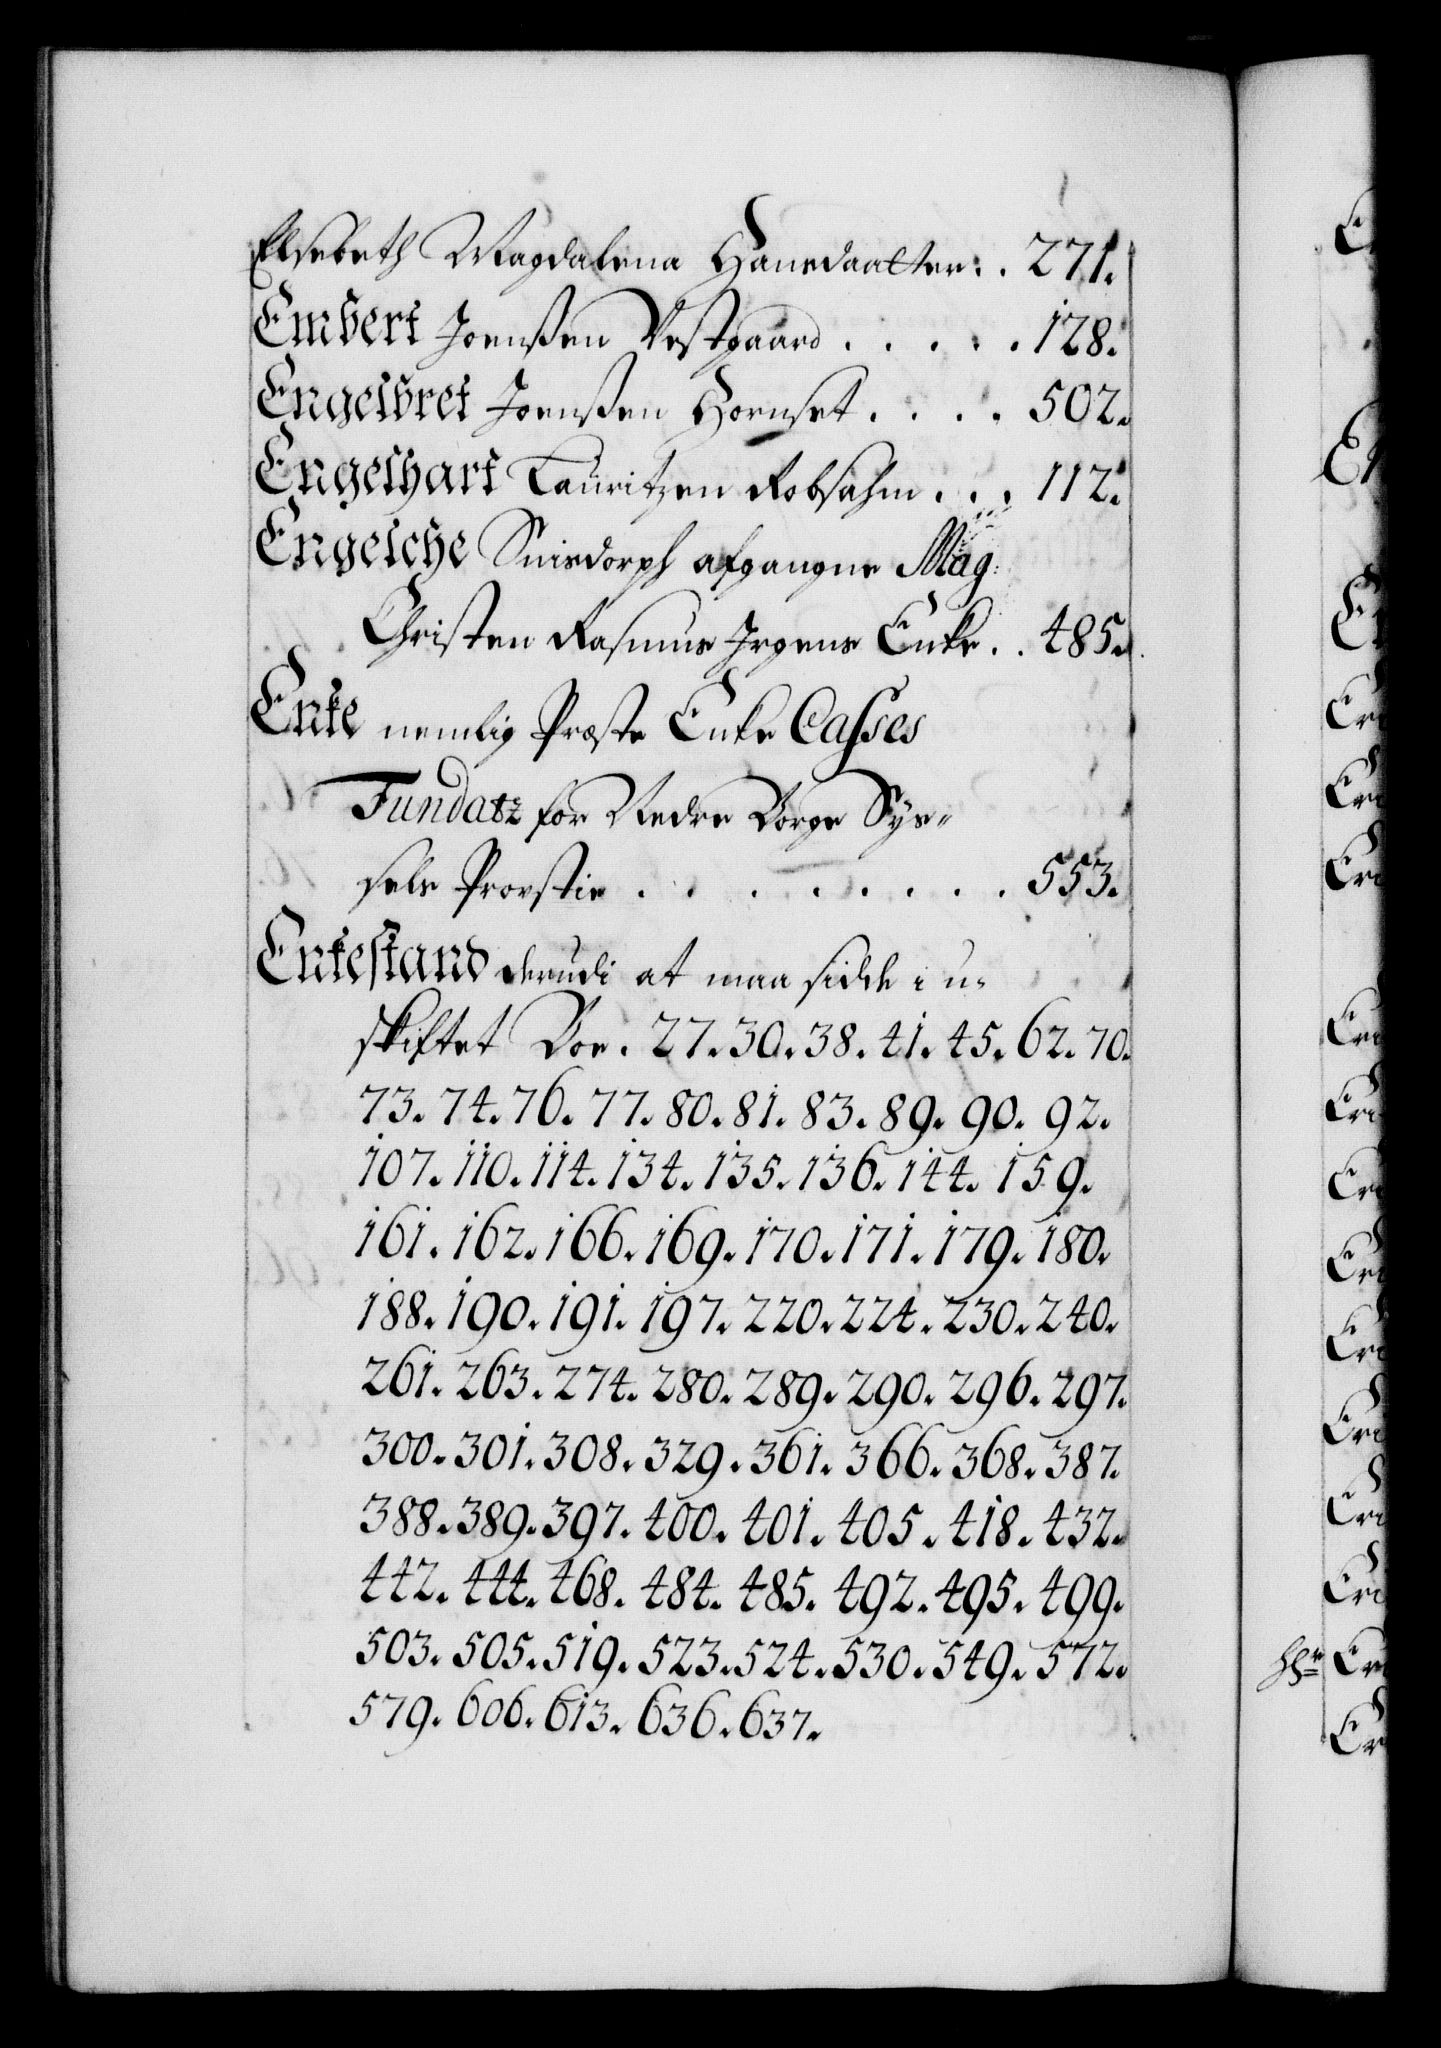 Elsebeth Magdalena Hansdaatter . . 271.
Embert Joenßen Vestgaard . . . . . 128.
Engelbret Joenßen Hornset . . . . 502.
Engelhart Lauritzen Robsahm . . . 112.
Engelche Snisdorph afgangne Mag:
Christen Rasmus Jrgens Enke . . 485.
Enke nemlig Præste Enke Casses
Fundatz for Nedre Borge Sys-
sels Provstie . . . . . . . . 553.
Enkestand derudi at maa sidde i u-
skiftet Boe. 27. 30. 38. 41. 45. 62. 70.
73. 74. 76. 77. 80. 81. 83. 89. 90. 92.
107. 110. 114. 134. 135. 136. 144. 159.
161. 162. 166. 169. 170. 171. 179. 180.
188. 190. 191. 197. 220. 224. 230. 240.
261. 263. 274. 280. 289. 290. 296. 297.
300. 301. 308. 329. 361. 366. 368. 387.
388. 389. 397. 400. 401. 405. 418. 432.
442. 444. 468. 484. 485. 492. 495. 499.
503. 505. 519. 523. 524. 530. 549. 572.
579. 606. 613. 636. 637.